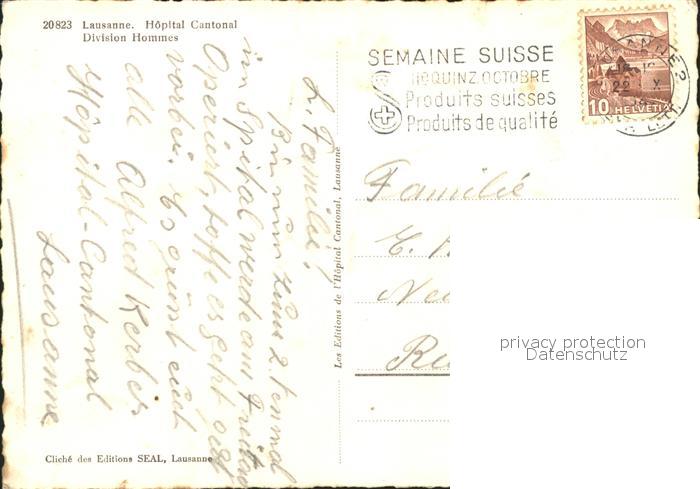 20823 Lausanne. Hôpital Cantonal
Division Hommes
SEMAINE SUISSE
QUINZ. OCTOBRE
Produits suisses
Produits de qualité
10 HELVETIA
22 X
L. Familie!
Bin nun zum 2. tenmal
im Spital werde am Freitag
Operiert, hoffe es geht gut
vorbei. Es grüsst euch
alle Alfred Kerber
Hôpital-Cantonal
Lausanne
Les Editions de l'Hôpital Cantonal, Lausanne
Familie
privacy protection
Datenschutz
Cliché des Editions SEAL, Lausanne